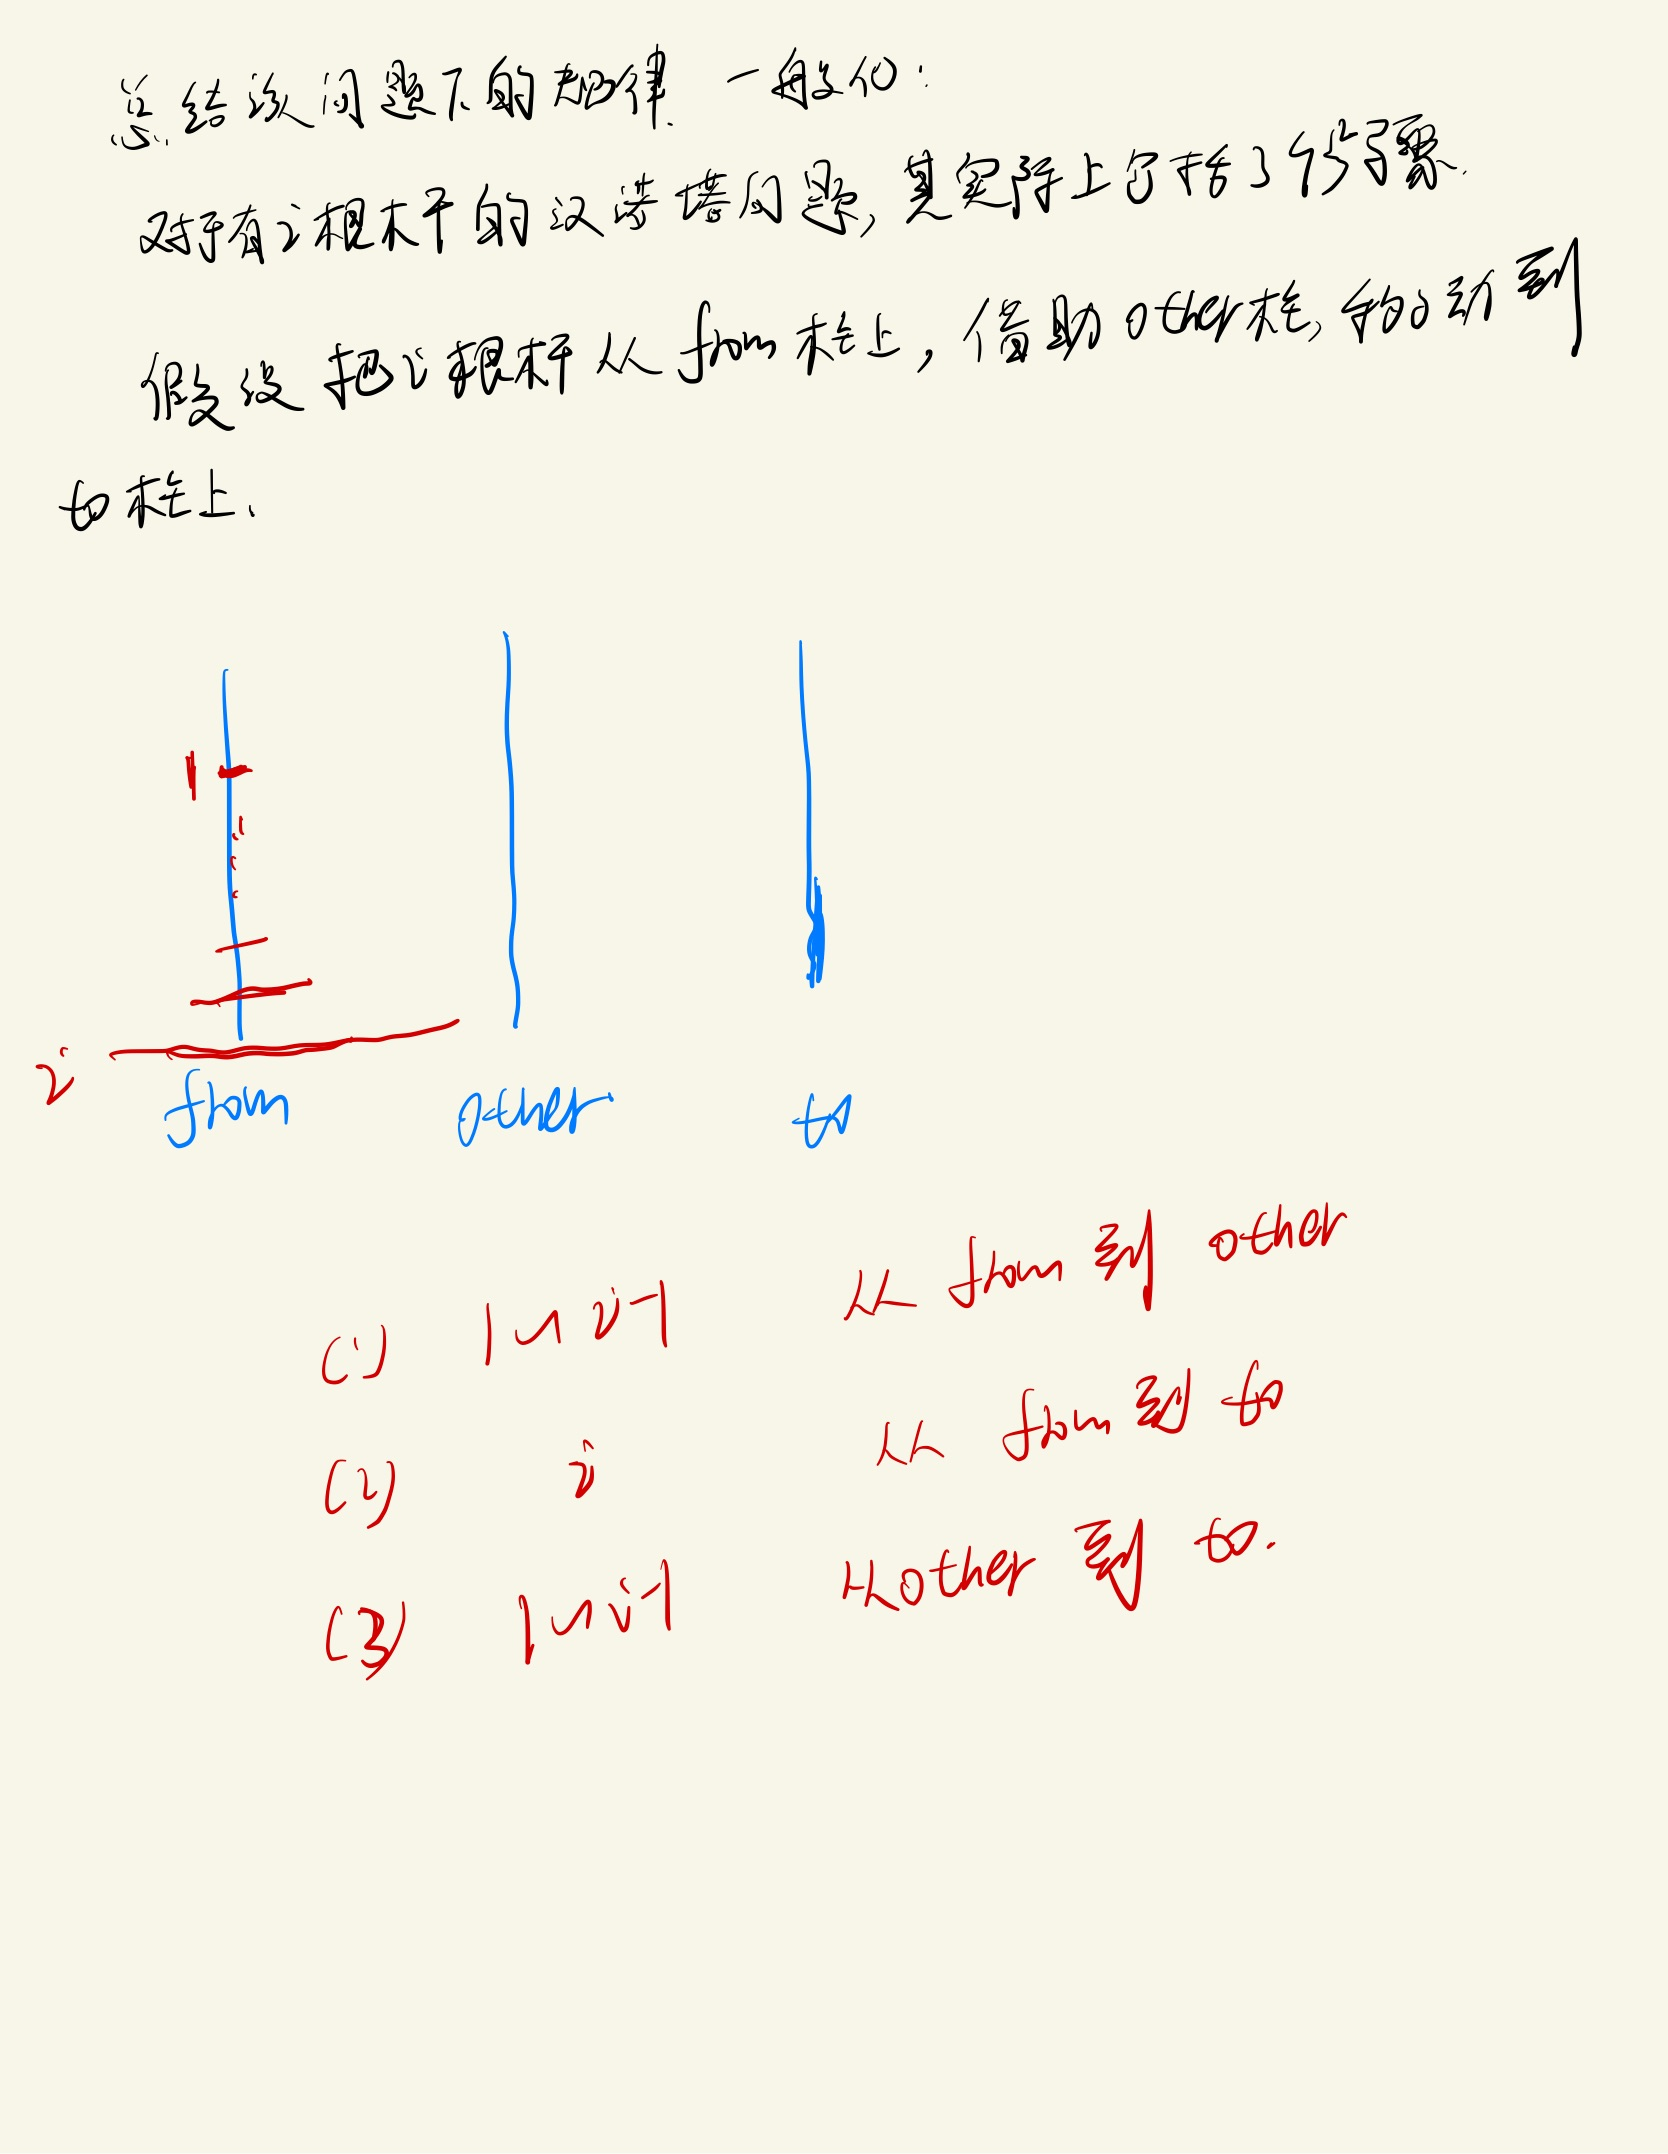 总结该问题下的规律 一般化：
对于有i根木干的汉诺塔问题，其实际上包括3个步骤.
假设把i根杆从from柱上，借助other柱，移动到
to柱上.
1
i
from other to
(1) 1~i-1 从from到other
(2) i 从from到to
(3) 1~i-1 从other到to.